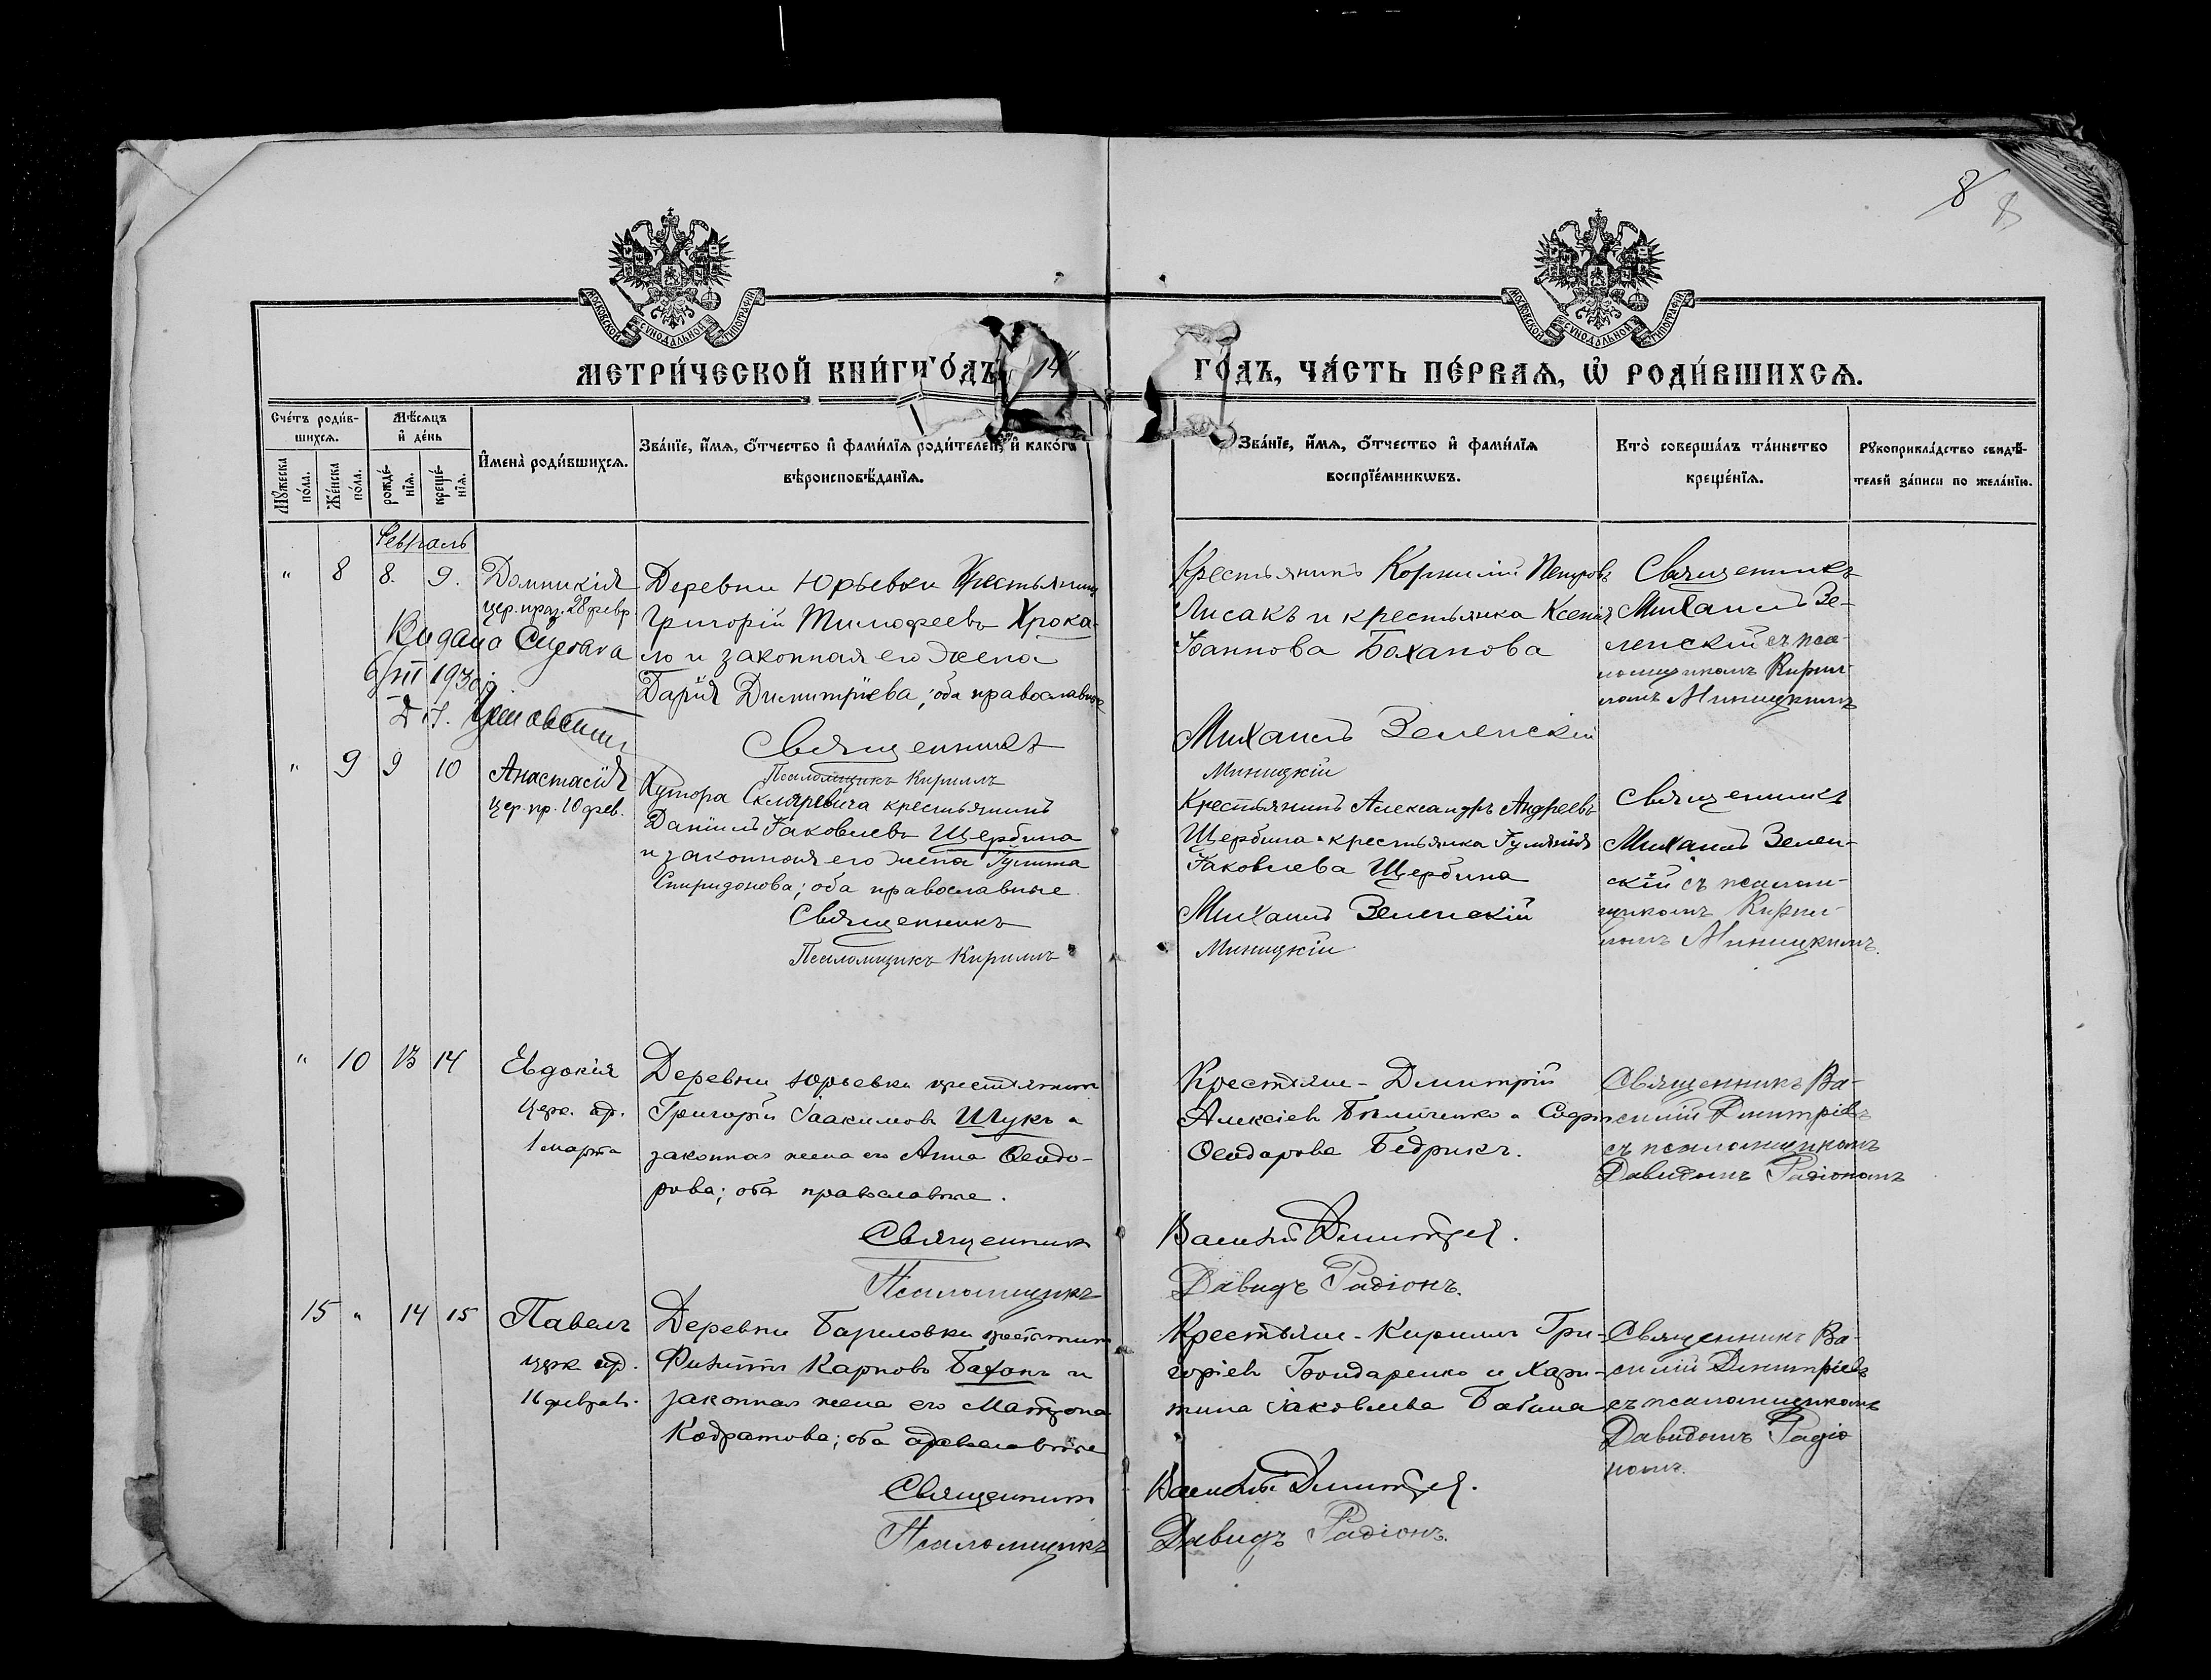 8 8
МОСКОВСКОЙ СѴНОДАЛЬНОЙ ТИПОГРАФІИ
МОСКОВСКОЙ СѴНОДАЛЬНОЙ ТИПОГРАФІИ
МЕТРИ́ЧЕСКОЙ КНИ́ГИ О́ДЪ 14
ГО́ДЪ, ЧА́СТЬ ПЕ́РВАѦ, Ѡ҆ РОДИ́ВШИХСѦ.
Сче́тъ роди́в-
шихсѧ.
Мꙋ́жеска по́ла.
Же́нска по́ла.
Мѣ́сѧцъ
и҆ де́нь
рожде́-
нїѧ.
креще́-
нїѧ.
И҆мена̀ роди́вшихсѧ.
Зва́нїе, и҆́мѧ, ѻ҆́тчество и҆ фами́лїѧ роди́телей, и҆ како́гѡ
вѣроисповѣ́данїѧ.
Зва́нїе, и҆́мѧ, ѻ҆́тчество и҆ фами́лїѧ
воспрїе́мникѡвъ.
Кто̀ соверша́лъ та́инство
креще́нїѧ.
Рꙋкоприкла́дство свидѣ́-
телей за́писи по жела́нїю.
Февраль
" 8 8. 9.
Домникія
цер. праз. 28 февр.
Видано
6/III 1930
Деревни Юрьевки Крестьянинъ
Григорій Тимофеевъ Хрока-
ло и законная его жена
Дарія Димитріева; оба православные
Священникъ
Псаломщикъ Кириллъ
Крестьянинъ Корнилій Петровъ
Лисакъ и крестьянка Ксенія
Іоаннова Боханова
Михаилъ Зеленскій
Миницкій
Священникъ
Михаилъ Зе-
ленскій съ пса-
ломщикомъ Кирил-
ломъ Миницкимъ
" 9 9 10
Анастасія
цер. пр. 10 фев.
Хутора Скляревича крестьянинъ
Даніилъ Іаковлевъ Щербина
и законная его жена Іулитта
Спиридонова; оба православные
Священникъ
Псаломщикъ Кириллъ
Крестьянинъ Александръ Андреевъ
Щербина и крестьянка Іуліанія
Іаковлева Щербина
Михаилъ Зеленскій
Миницкій
Священникъ
Михаилъ Зелен-
скій съ псалом-
щикомъ Кирил-
ломъ Миницкимъ.
" 10 13 14
Евдокія
церк. пр.
1 марта
Деревни Юрьевки крестьянинъ
Григорій Іоакимовъ Шукъ и
законная жена его Анна Ѳеодо-
рова; оба православные.
Священникъ
Псаломщикъ
Крестьяне - Димитрій
Алексіевъ и Софія
Ѳеодорова Бедрикъ.
Василій Димитріевъ.
Давидъ Радіонъ.
Священникъ Ва-
силій Димитріевъ
съ псаломщикомъ
Давидомъ Радіономъ
15 " 14 15
Павелъ
церк. пр.
16 февраля.
Деревни Бариловки крестьянинъ
Филиппъ Карповъ Баханъ и
законная жена его Матрона
Кодратова; оба православные
Священникъ
Псаломщикъ
Крестьяне - Кириллъ Гри-
горіевъ Бондаренко и Хари-
тина Іаковлева Бабина
Василій Димитріевъ.
Давидъ Радіонъ.
Священникъ Ва-
силій Димитріевъ
съ псаломщикомъ
Давидомъ Радіо
номъ.